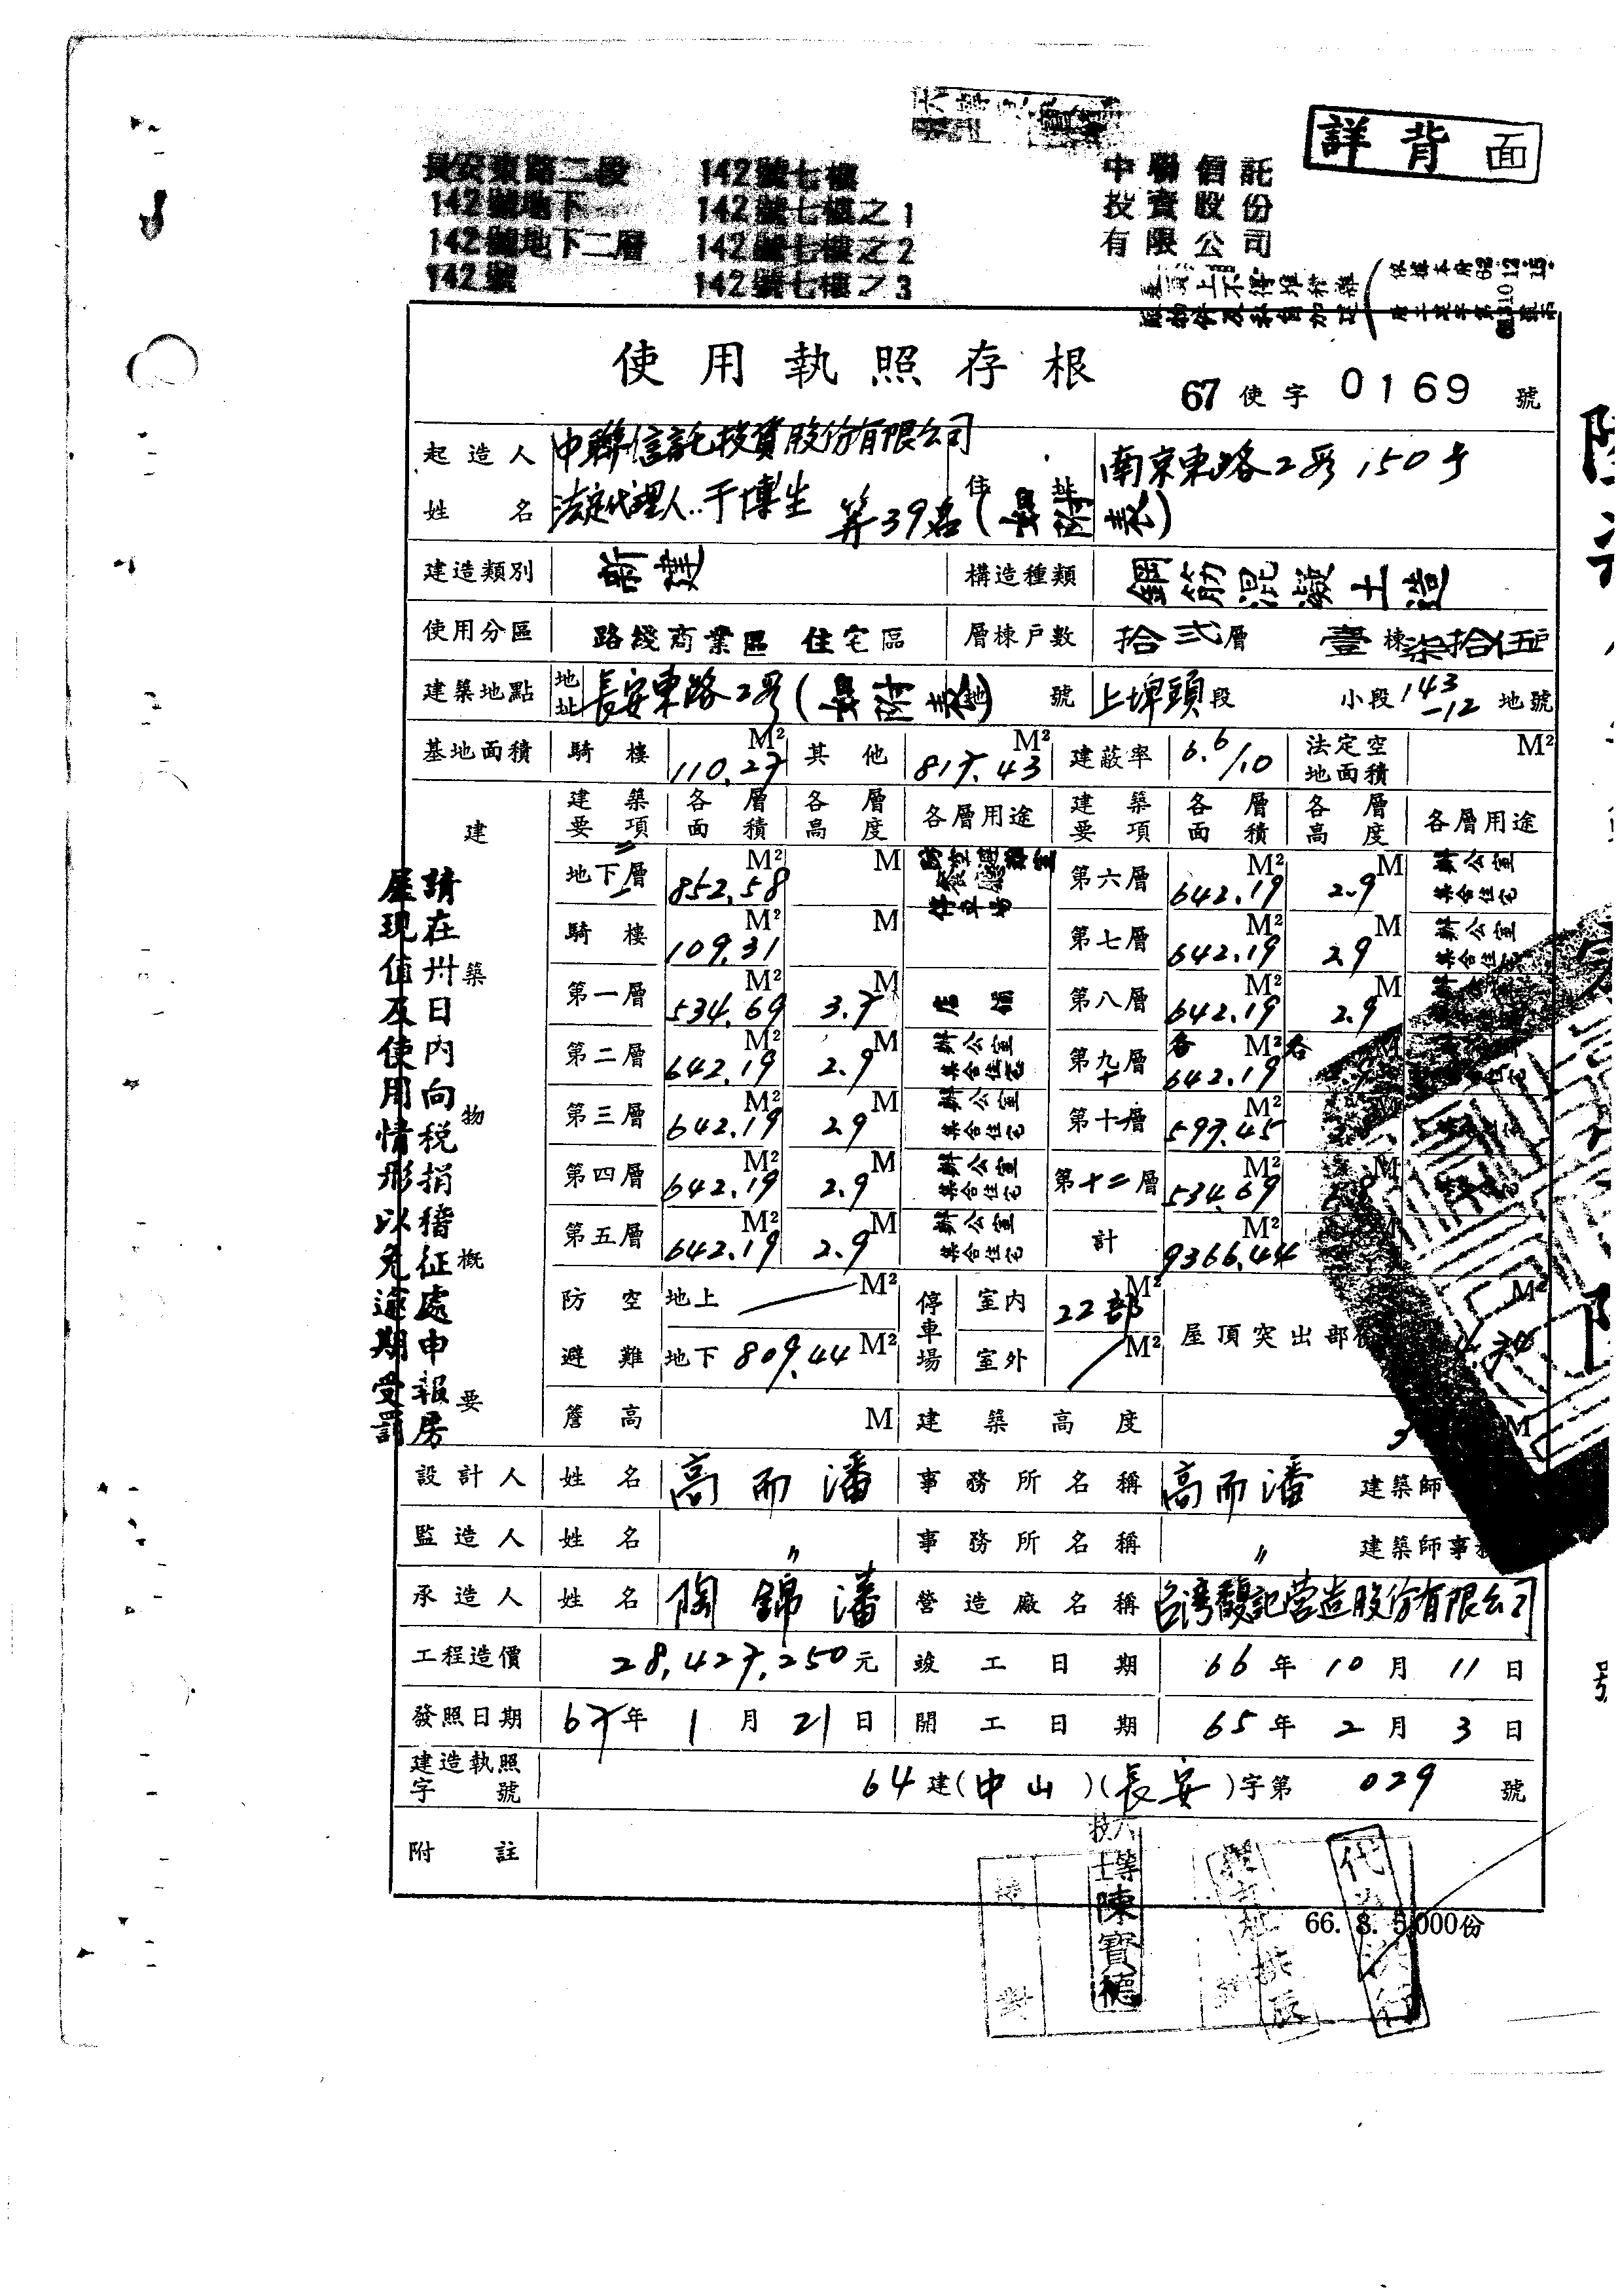 詳背面
長安東路二段
142號地下
142號地下二層
142號
142號七樓
142號七樓之1
142號七樓之2
142號七樓之3
中聯信託
投資股份
有限公司
使用執照存根
67使字0169號
起造人姓名 中聯信託投資股份有限公司
法定代理人..于博生 等39名(畀附表)
住址 南京東路2段150号
建造類別 新建 構造種類 鋼筋混凝土造
使用分區 路綫商業區 住宅區 層棟戶數 拾弍層 壹棟柒拾伍戶
建築地點 地址 長安東路2段(畀附表) 地號 上埤頭段 小段143-12地號
基地面積 騎樓 110.27 M² 其他 817.43 M² 建蔽率 6.6/10 法定空地面積 M²
建築物概要
建築要項 各層面積 各層高度 各層用途 建築要項 各層面積 各層高度 各層用途
地下層 852.58 M² M 防空避難室 停車場 第六層 642.19 M² 2.9 M 辦公室 集合住宅
騎樓 109.31 M² M 第七層 642.19 M² 2.9 M 辦公室 集合住宅
第一層 534.69 M² 3.7 M 店舖 第八層 642.19 M² 2.9 M
第二層 642.19 M² 2.9 M 辦公室 集合住宅 第九十層 各 642.19 M² 各
第三層 642.19 M² 2.9 M 辦公室 集合住宅 第十一層 597.45 M²
第四層 642.19 M² 2.9 M 辦公室 集合住宅 第十二層 534.69 M²
第五層 642.19 M² 2.9 M 辦公室 集合住宅 計 9366.44 M²
防空避難 地上 M² 停車場 室內 22部 M² 屋頂突出部 M²
地下 809.44 M² 室外 M²
簷高 M 建築高度 M
設計人 姓名 高而潘 事務所名稱 高而潘 建築師
監造人 姓名 〃 事務所名稱 〃 建築師事
承造人 姓名 陶錦潘 營造廠名稱 台湾馥記营造股份有限公司
工程造價 28,427,250元 竣工日期 66年10月11日
發照日期 67年1月21日 開工日期 65年2月3日
建造執照字號 64建(中山)(長安)字第029號
附註
請在卅日內向稅捐稽征處申報房
屋現值及使用情形以免逾期受罰
六等技士陳寶德
代為決行
66. 8. 5,000份